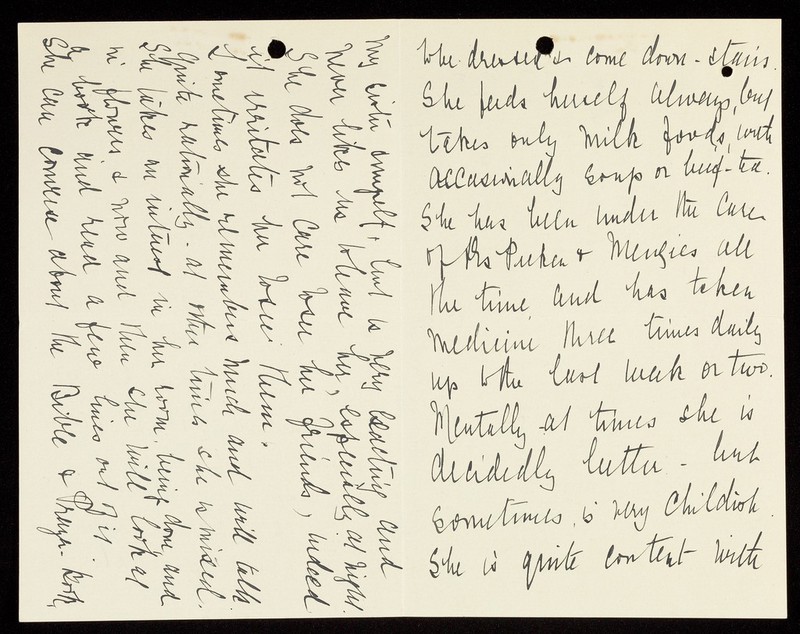 to be dressed & come down-stairs.
She feeds herself always, but
takes only milk foods, with
occasionally soup or beef-tea.
She has been under the care
of Drs & Menzies all
the time, and has taken
medicine three times daily
up to the last week or two.
Mentally at times she is
decidedly better - but
sometimes is very childish.
She is quite content with
my sister & myself, but is very exacting and
never likes us to leave her, especially at night.
She does not care to see her friends, indeed
it irritates her to see them.
Sometimes she remembers much and will talk
quite rationally - at other times she is mixed.
She takes an interest in her room being done, and
in flowers & now and then she will look at
a book and read a few lines out of it
She can converse about the Bible & Prayer-book,